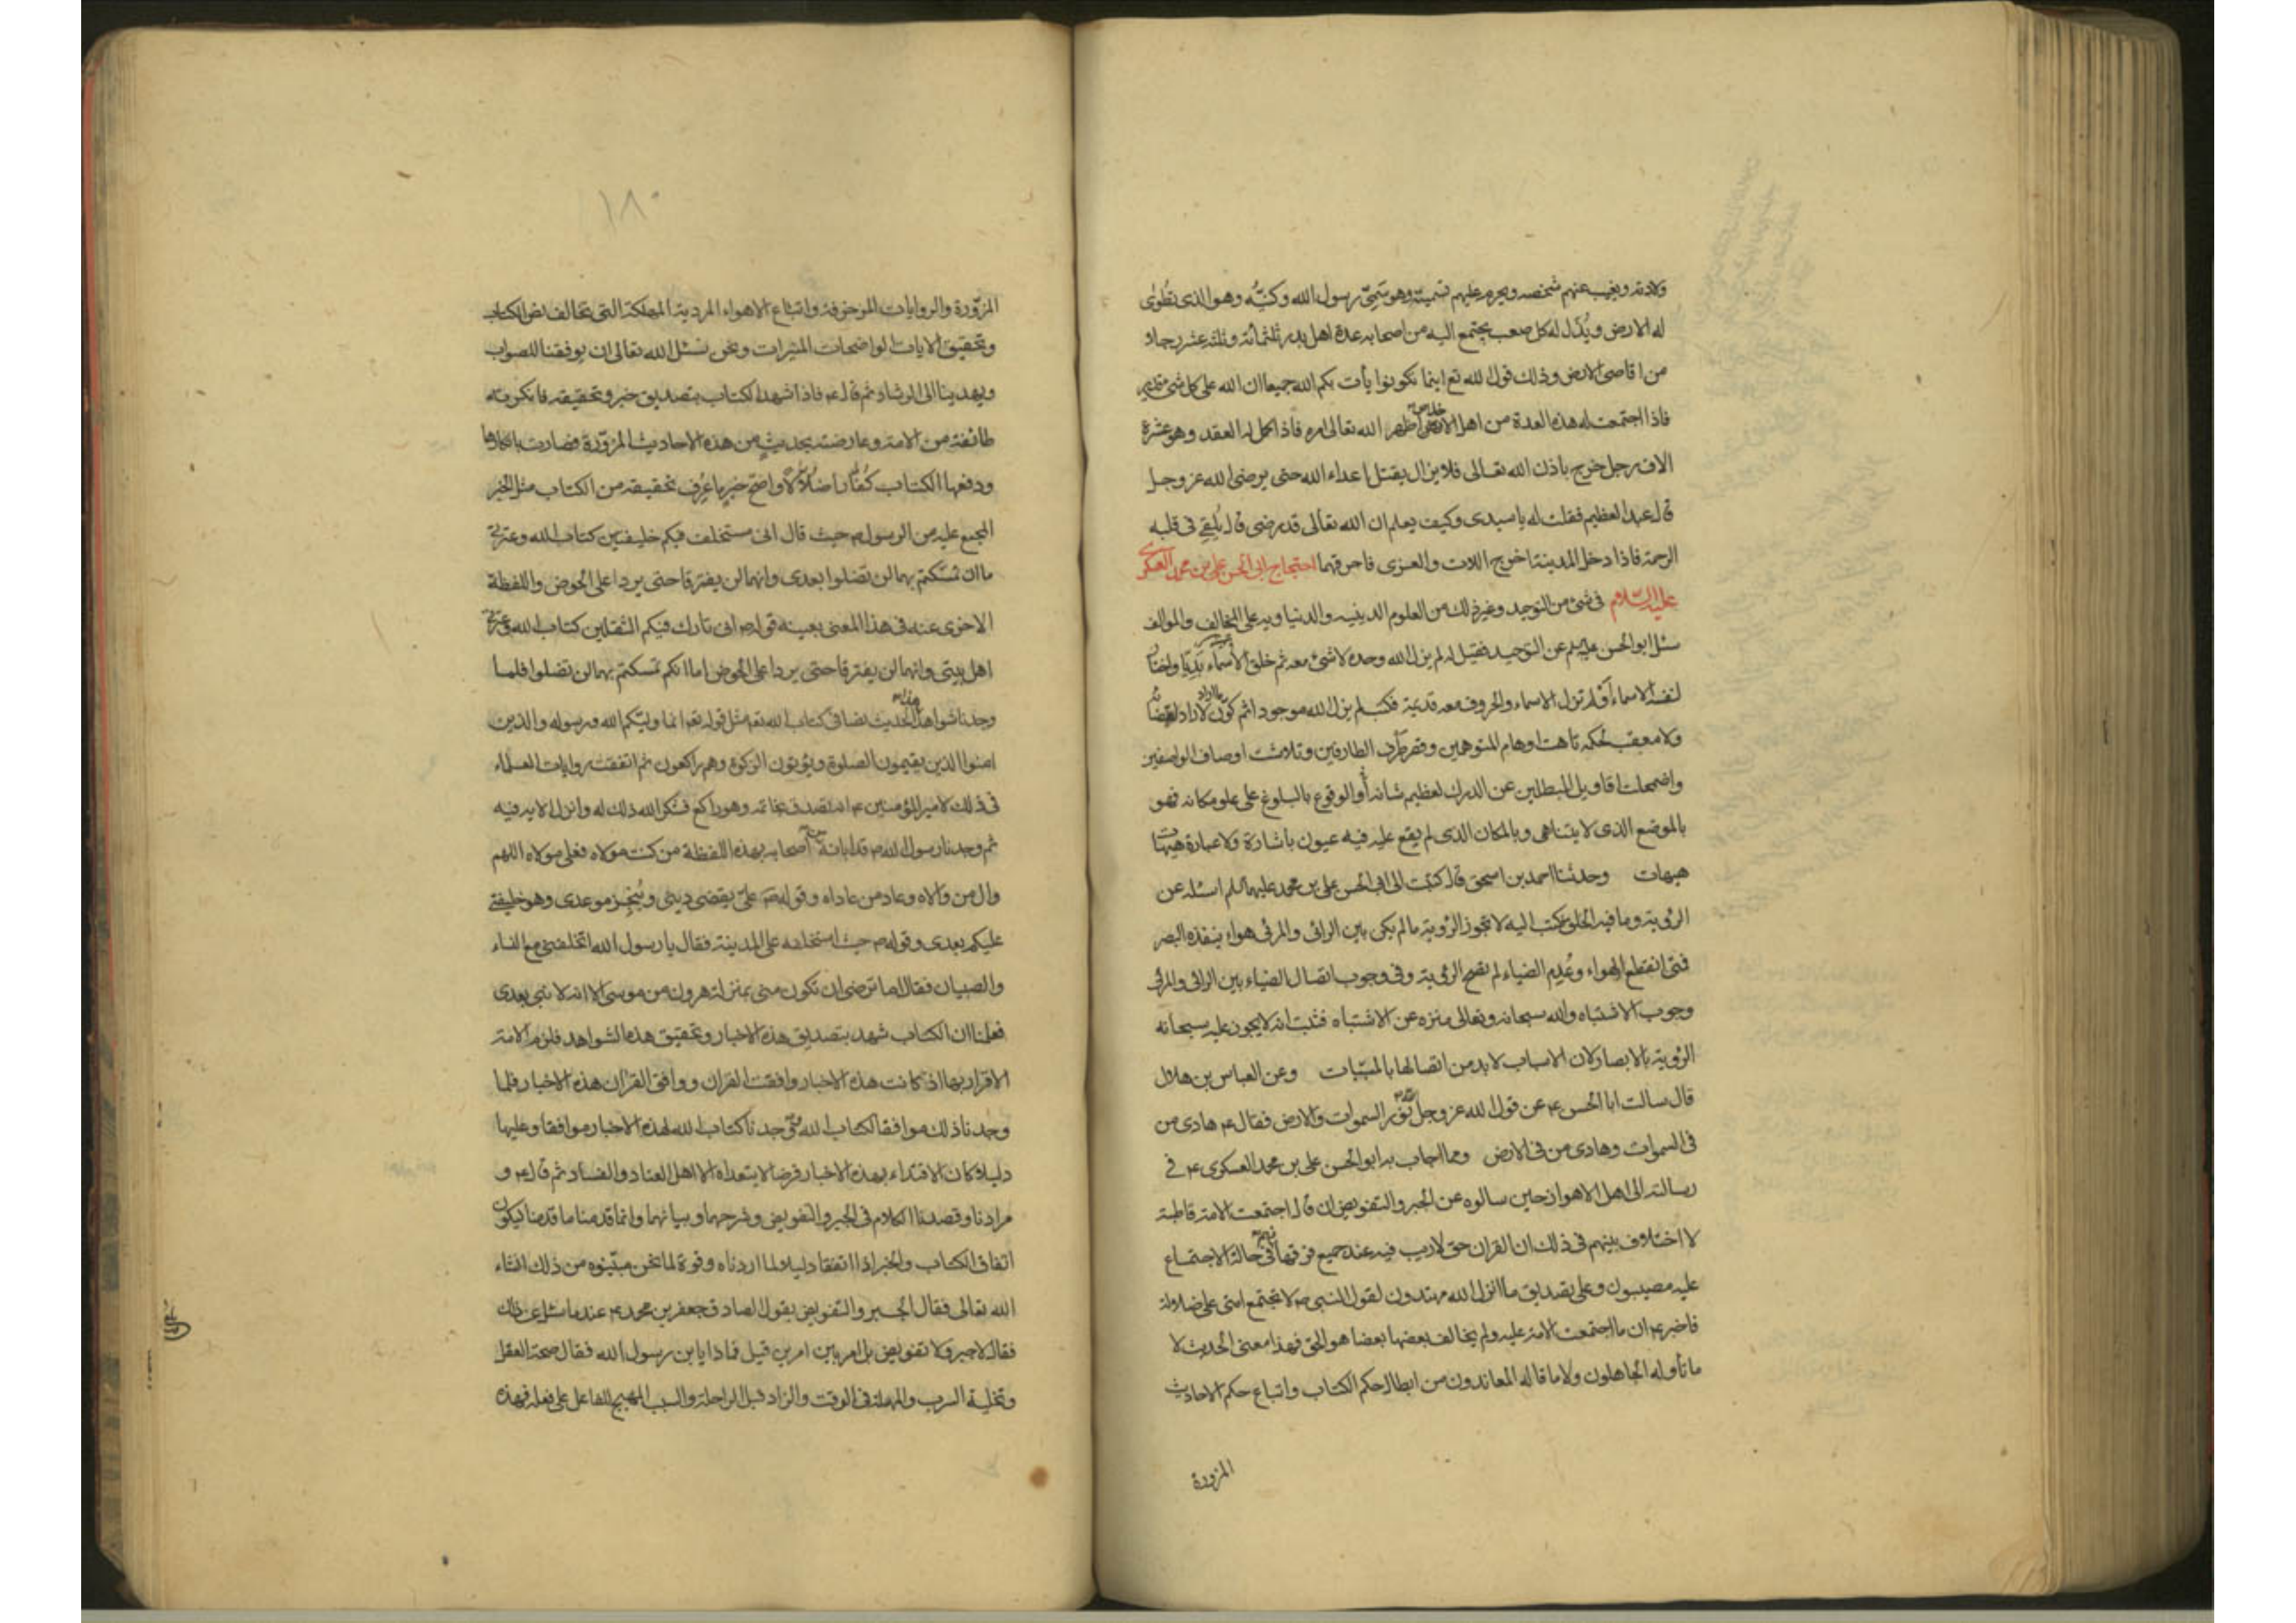 ولادته ويغيب عنهم شخصه ويحرم عليهم تسميته وهو سمي رسول الله وكنيه وهو الذي تطوى
له الارض ويذل له كل صعب يجتمع اليه من اصحابه عدة اهل بدر ثلثمائة وثلثة عشر رجلا
من اقاصي الارض وذلك قول الله تع اينما تكونوا يأت بكم الله جميعا ان الله على كل شئ قدير
فاذا اجتمعت له هذه العدة من اهل الارض اظهر الله تعالى امره فاذا اكمل له العقد وهو عشرة
الاف رجل خرج باذن الله تعالى فلا يزال يقتل اعداء الله حتى يرضى الله عز وجل
قال عبد العظيم فقلت له يا سيدى وكيف يعلم ان الله تعالى قد رضى قال يلقي فى قلبه
الرحمة فاذا دخل المدينة اخرج اللات والعزى فاحرقهما احتجاج ابى الحسن على بن محمد العسكرى
عليه السلام فى شئ من التوحيد وغير ذلك من العلوم الدينيه والدنياويه على المخالف والموالف
سئل ابو الحسن عن التوحيد فقيل له لم يزل الله وحده لا شئ معه ثم خلق الأشياء بديا واختار
لنفسه الاسماء او لم تزل الاسماء والحروف معه قديمة فكتب لم يزل الله موجودا ثم كون ما اراد لا راد لقضائه
ولا معقب لحكمه تاهت اوهام المتوهمين وقصر طرف الطارفين وتلاشت اوصاف الواصفين
واضمحلت اقاويل المبطلين عن الدرك لعظيم شانه أو الوقوع بالبلوغ على علو مكانه فهو
بالموضع الذى لا يتناهى وبالمكان الذى لم يقع عليه فيه عيون باشارة ولا عبارة هيهات
هيهات وحدثنا احمد بن اسحق قال كتبت الى ابى الحسن على بن محمد عليهما السلم اسئله عن
الرؤية وما فيه الخلق فكتب اليه لا تجوز الرؤية ما لم يكن بين الرائى والمرئى هواء ينفذه البصر
فمتى انقطع الهواء وعدم الضياء لم تصح الرؤية وفى وجوب اتصال الضياء بين الرائى والمرئى
وجوب الاشتباه والله سبحانه وتعالى منزه عن الاشتباه فثبت انه لا يجوز عليه سبحانه
الرؤية بالابصار لان الاسباب لا بد من اتصالها بالمسببات وعن العباس بن هلال
قال سالت ابا الحسن ع عن قول الله عز وجل الله نور السموات والارض فقال ع هادى من
فى السموات وهادى من فى الارض ومما اجاب به ابو الحسن على بن محمد العسكرى ع فى
رسالته الى اهل الاهواز حين سالوه عن الجبر والتفويض ان قال اجتمعت الامة قاطبة
لا اختلاف بينهم فى ذلك ان القران حق لا ريب فيه عند جميع فرقها فهم فى حالة الاجتماع
عليه مصيبون وعلى تصديق ما انزل الله مهتدون لقول النبى ص لا تجتمع امتى على ضلالة
فاخبر ع ان ما اجتمعت الامة عليه ولم يخالف بعضها بعضا هو الحق فهذا معنى الحديث لا
ما تأوله الجاهلون ولا ما قاله المعاندون من ابطال حكم الكتاب واتباع حكم الاحاديث
المزورة
١٨٠
المزوّرة والروايات المزخرفة واتباع الاهواء المردية المهلكة التى تخالف نص الكتاب
وتحقيق الايات الواضحات النيرات ونحن نسئل الله تعالى ان يوفقنا للصواب
ويهدينا الى الرشاد ثم قال ع فاذا شهد الكتاب بتصديق خبر وتحقيقه فانكرته
طائفة من الامة وعارضته بحديث من هذه الاحاديث المزوّرة فصارت بانكارها
ودفعها الكتاب كفارا ضلالا واصح خبر ما عرف تحقيقه من الكتاب مثل الخبر
المجمع عليه من الرسول ص حيث قال انى مستخلف فيكم خليفتين كتاب الله وعترتى
ما ان تمسكتم بهما لن تضلوا بعدى وانهما لن يفترقا حتى يردا على الحوض واللفظة
الاخرى عنه فى هذا المعنى بعينه قوله ص انى تارك فيكم الثقلين كتاب الله وعترتى
اهل بيتى وانهما لن يفترقا حتى يردا على الحوض اما انكم تمسكتم بهما لن تضلوا فلما
وجدنا شواهد هذا الحديث نصا فى كتاب الله تعه مثل قوله تعه انما وليكم الله ورسوله والذين
امنوا الذين يقيمون الصلوة ويؤتون الزكوة وهم راكعون ثم اتفقت روايات العلماء
فى ذلك لامير المؤمنين ع انه تصدق بخاتمه وهو راكع فشكر الله ذلك له وانزل الاية فيه
ثم وجدنا رسول الله ص قد ابانه من اصحابه بهذه اللفظة من كنت مولاه فعلى مولاه اللهم
وال من والاه وعاد من عاداه وقوله ص على يقضى دينى وينجز موعدى وهو خليفتى
عليكم بعدى وقوله ص حيث استخلفه على المدينة فقال يا رسول الله اتخلفنى مع النساء
والصبيان فقال اما ترضى ان تكون منى بمنزلة هرون من موسى الا انه لا نبى بعدى
فعلمنا ان الكتاب شهد بتصديق هذه الاخبار وتحقيق هذه الشواهد فلزم الامة
الاقرار بها اذ كانت هذه الاخبار وافقت القران ووافق القران هذه الاخبار فلما
وجدنا ذلك موافقا لكتاب الله ووجدنا كتاب الله لهذه الاخبار موافقا وعليها
دليلا كان الاقتداء بهذه الاخبار فرضا لا يتعداه الا اهل العناد والفساد ثم قال ع و
مرادنا وقصدنا الكلام فى الجبر والتفويض وشرحهما وبيانهما وانما قدمنا ما قدمنا ليكون
اتفاق الكتاب والخبر اذا اتفقا دليلا لما اردناه وقوة لما نحن مبينوه من ذلك انشاء
الله تعالى فقال الجبر والتفويض بقول الصادق جعفر بن محمد ع عندما سئل عن ذلك
فقال لا جبر ولا تفويض بل امر بين امرين قيل فماذا يا بن رسول الله فقال صحة العقل
وتخلية السرب والمهلة فى الوقت والزاد قبل الراحلة والسبب المهيج للفاعل على فعله فهذه